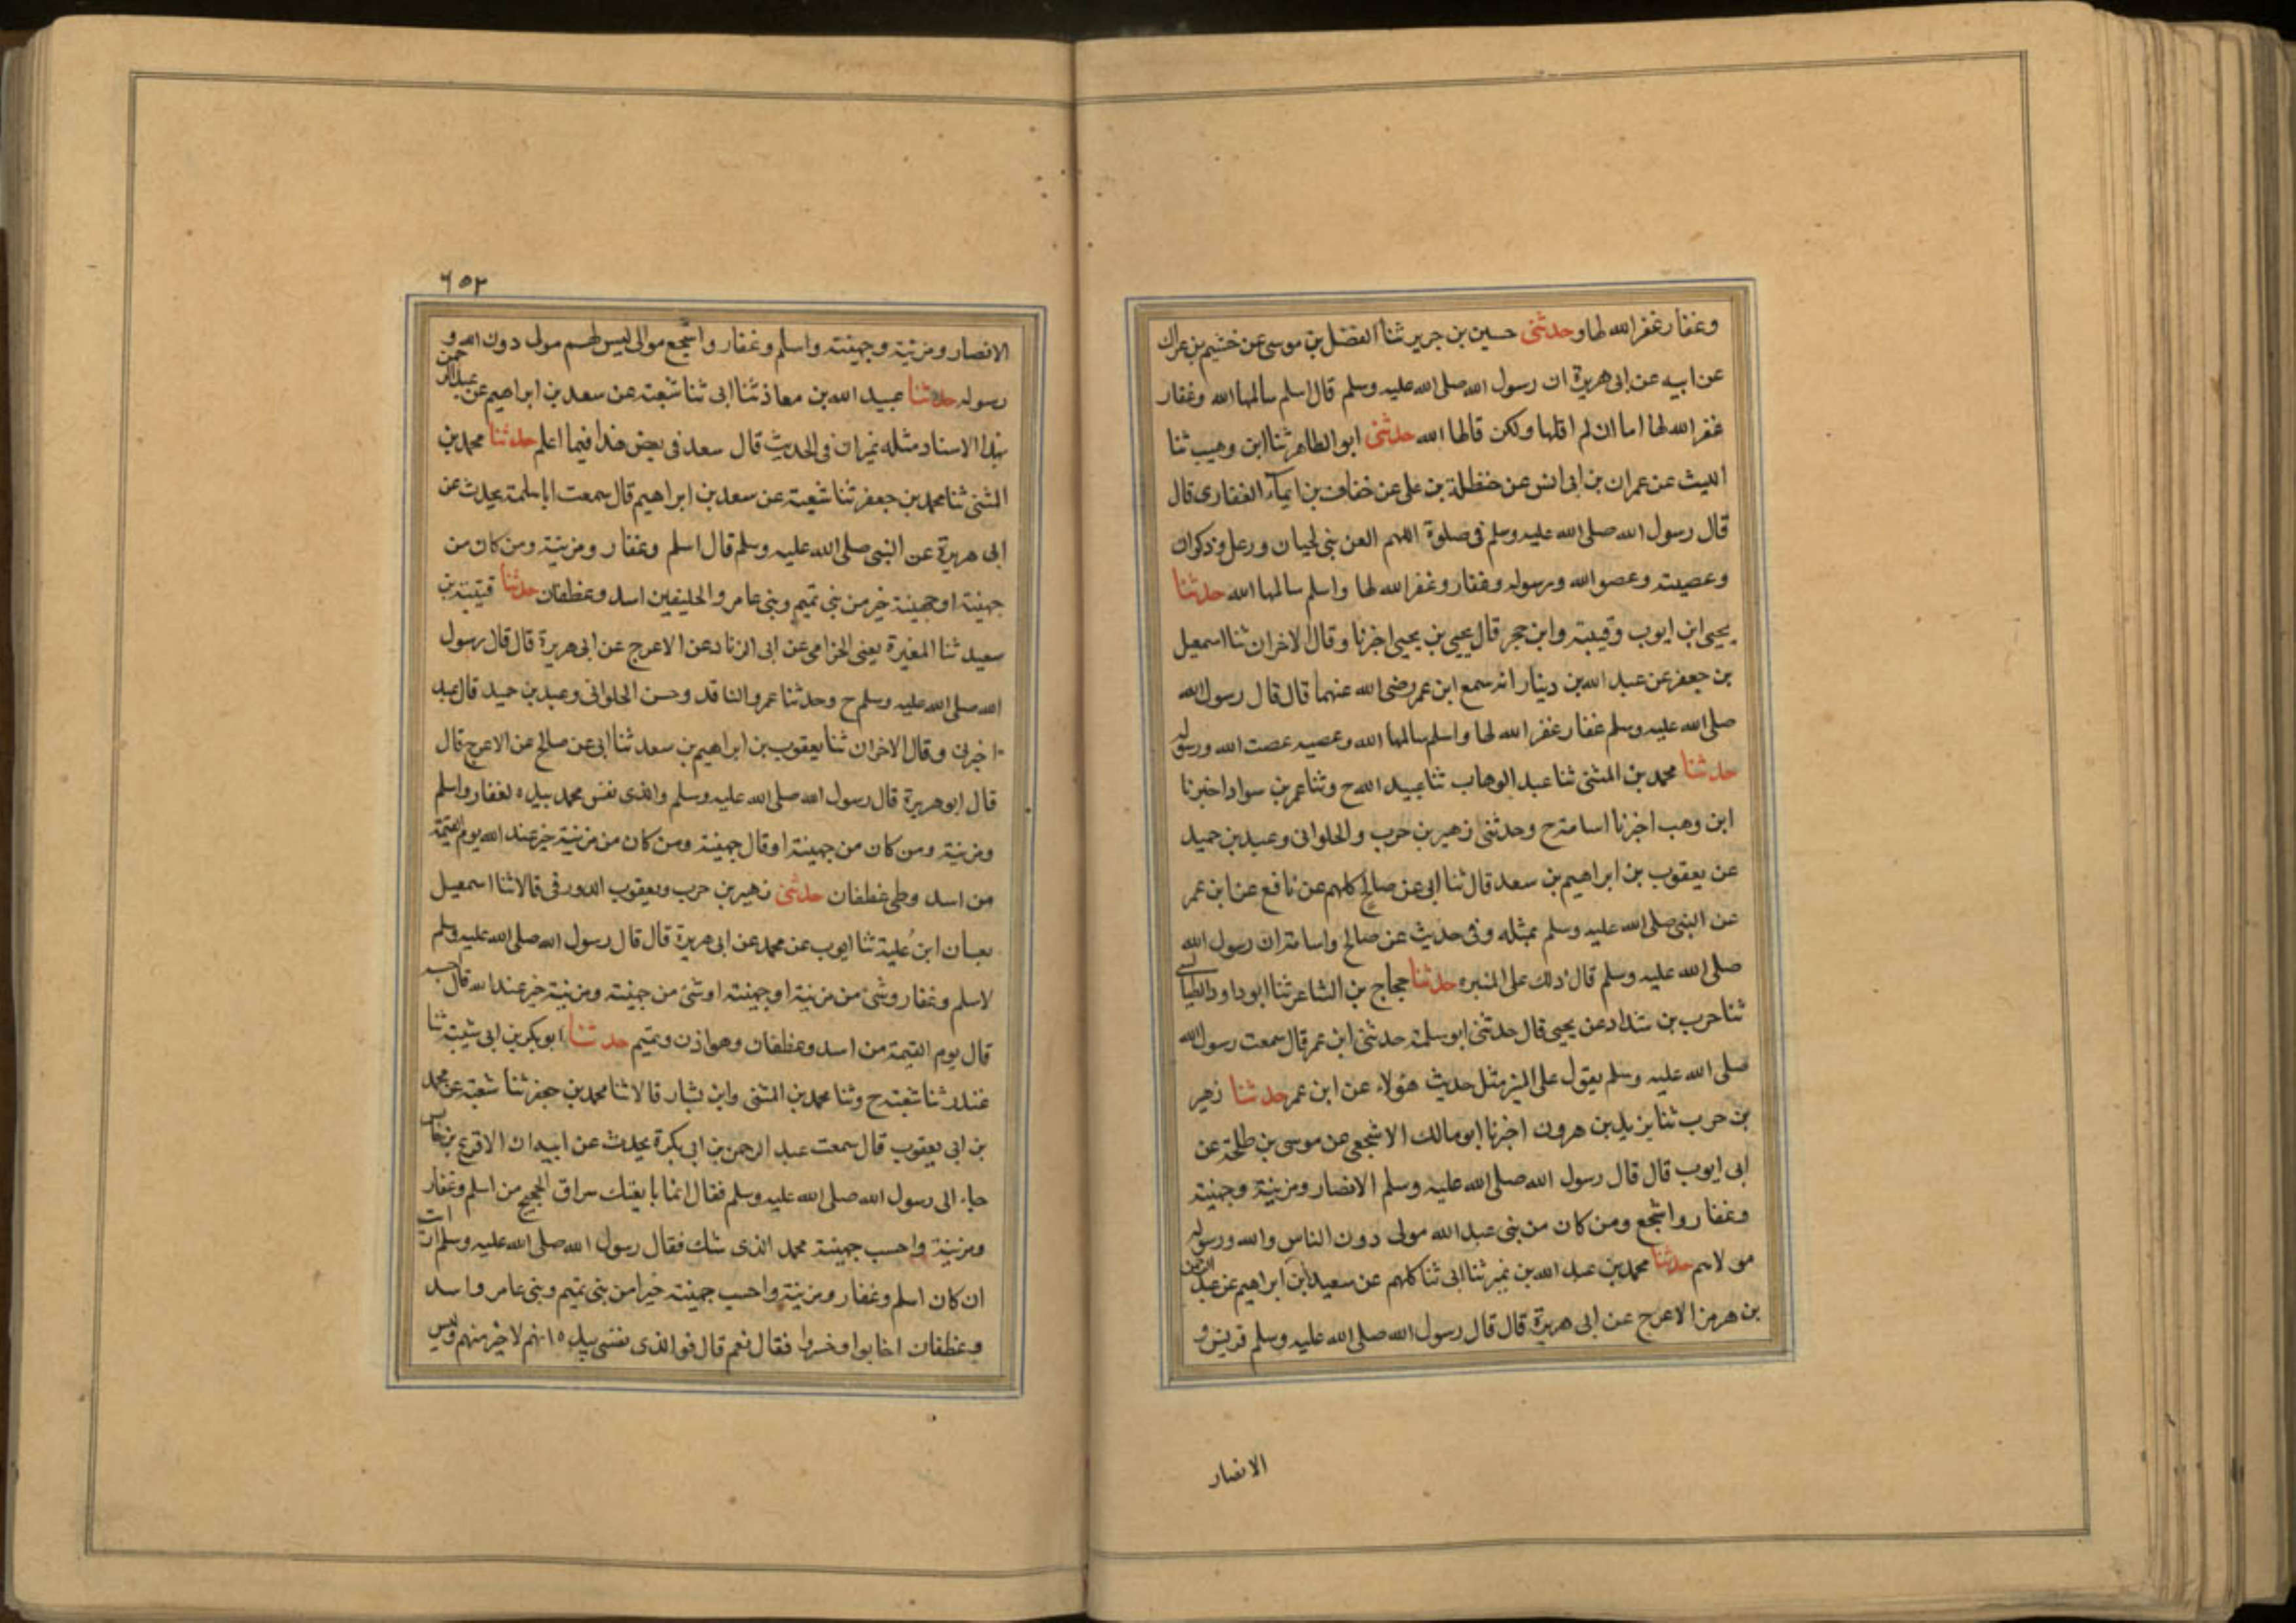 وغفار غفر الله لها وحدثنى حسين بن جرير ثنا الفضل بن موسى عن خثيم بن عراك
عن ابيه عن ابى هريرة ان رسول الله صلى الله عليه وسلم قال اسلم سالمها الله وغفار
غفر الله لها اما ان لم اقلها ولكن قالها الله حدثنى ابو الطاهر ثنا ابن وهب ثنا
الليث عن عمران بن ابى انس عن حنظلة بن على عن خفاف بن ايماء الغفارى قال
قال رسول الله صلى الله عليه وسلم فى صلوة اللهم العن بنى لحيان ورعل وذكوان
وعصيته وعصوا الله ورسوله وغفار وغفر الله لها واسلم سالمها الله حدثنا
يحيى ابن ايوب وقتيبة وابن حجر قال يحيى بن يحيى اخبرنا وقال الاخران ثنا اسمعيل
بن جعفر عن عبد الله بن دينار انه سمع ابن عمر رضى الله عنهما قال قال رسول الله
صلى الله عليه وسلم غفار غفر الله لها واسلم سالمها الله وعصيه عصت الله ورسوله
حدثنا محمد بن المثنى ثنا عبد الوهاب ثنا عبيد الله ح وثنا عمر بن سواد اخبرنا
ابن وهب اخبرنا اسامة ح وحدثنى زهير بن حرب والحلوانى وعبد بن حميد
عن يعقوب بن ابراهيم بن سعد قال ثنا ابى عن صالح كلهم عن نافع عن ابن عمر
عن النبى صلى الله عليه وسلم بمثله وفى حديث عن صالح واسامة ان رسول الله
صلى الله عليه وسلم قال ذلك على المنبره حدثنا حجاج بن الشاعر ثنا ابو داود الطيالسى
ثنا حرب بن شداد عن يحيى قال حدثنى ابو سلمة حدثنى ابن عمر قال سمعت رسول الله
صلى الله عليه وسلم يقول على المنبر مثل حديث هؤلاء عن ابن عمر حدثنا زهير
بن حرب ثنا يزيد بن هرون اخبرنا ابو مالك الاشجعى عن موسى بن طلحة عن
ابى ايوب قال قال رسول الله صلى الله عليه وسلم الانصار ومزينة وجهينة
وغفار واشجع ومن كان من بنى عبد الله مولى دون الناس والله ورسوله
مولاهم حدثنا محمد بن عبد الله بن نمير ثنا ابى ثنا كلهم عن سعيد ابن ابراهيم عن عبد الرحمن
بن هرمز الاعرج عن ابى هريرة قال قال رسول الله صلى الله عليه وسلم قريش و
الانصار
٦٥٣
الانصار ومزينة وجهينة واسلم وغفار واشجع موالى ليس لهم مولى دون الله و
رسوله حدثنا عبيد الله بن معاذ ثنا ابى ثنا شعبة عن سعد بن ابراهيم عن عبد الرحمن
بهذا الاسناد مثله غير ان فى الحديث قال سعد فى بعض هذا فيما اعلم حدثنا محمد بن
المثنى ثنا محمد بن جعفر ثنا شعبة عن سعد بن ابراهيم قال سمعت ابا سلمة يحدث عن
ابى هريرة عن النبى صلى الله عليه وسلم قال اسلم وغفار ومزينة ومن كان من
جهينة او جهينة خير من بنى تميم وبنى عامر والحليفين اسد وغطفان حدثنا قتيبة بن
سعيد ثنا المغيرة يعنى الحزامى عن ابى الزناد عن الاعرج عن ابى هريرة قال قال رسول
الله صلى الله عليه وسلم ح وحدثنا عمرو الناقد وحسن الحلوانى وعبد بن حميد قال عبد
اخبرنى وقال الاخران ثنا يعقوب بن ابراهيم بن سعد ثنا ابى عن صالح عن الاعرج قال
قال ابو هريرة قال رسول الله صلى الله عليه وسلم والذى نفس محمد بيده لغفار واسلم
ومزينة ومن كان من جهينة او قال جهينة ومن كان من مزينة خير عند الله يوم القيمة
من اسد وطى غطفان حدثنى زهير بن حرب ويعقوب الدورقى قالا ثنا اسمعيل
بعيان ابن عُلية ثنا ايوب عن محمد عن ابى هريرة قال قال رسول الله صلى الله عليه وسلم
لاسلم وغفار وشئ من مزينة او جهينة او شئ من جهينة ومزينة خير عند الله قال احسبه
قال يوم القيمة من اسد وغطفان وهوازن وتميم حدثنا ابو بكر بن ابى شيبة ثنا
غندر ثنا شعبة ح وثنا محمد بن المثنى وابن بشار قالا ثنا محمد بن جعفر ثنا شعبة عن محمد
بن ابى يعقوب قال سمعت عبد الرحمن بن ابى بكرة يحدث عن ابيه ان الاقرع بن حابس
جاء الى رسول الله صلى الله عليه وسلم فقال انما بايعك سراق الحجيج من اسلم وغفار
ومزينة واحسب جهينة محمد الذى شك فقال رسول الله صلى الله عليه وسلم ارأيت
ان كان اسلم وغفار ومزينة واحسب جهينة خيرا من بنى تميم وبنى عامر واسد
وغطفان اخابوا وخسروا فقال نعم قال فوالذى نفسى بيده انهم لاخير منهم وليس